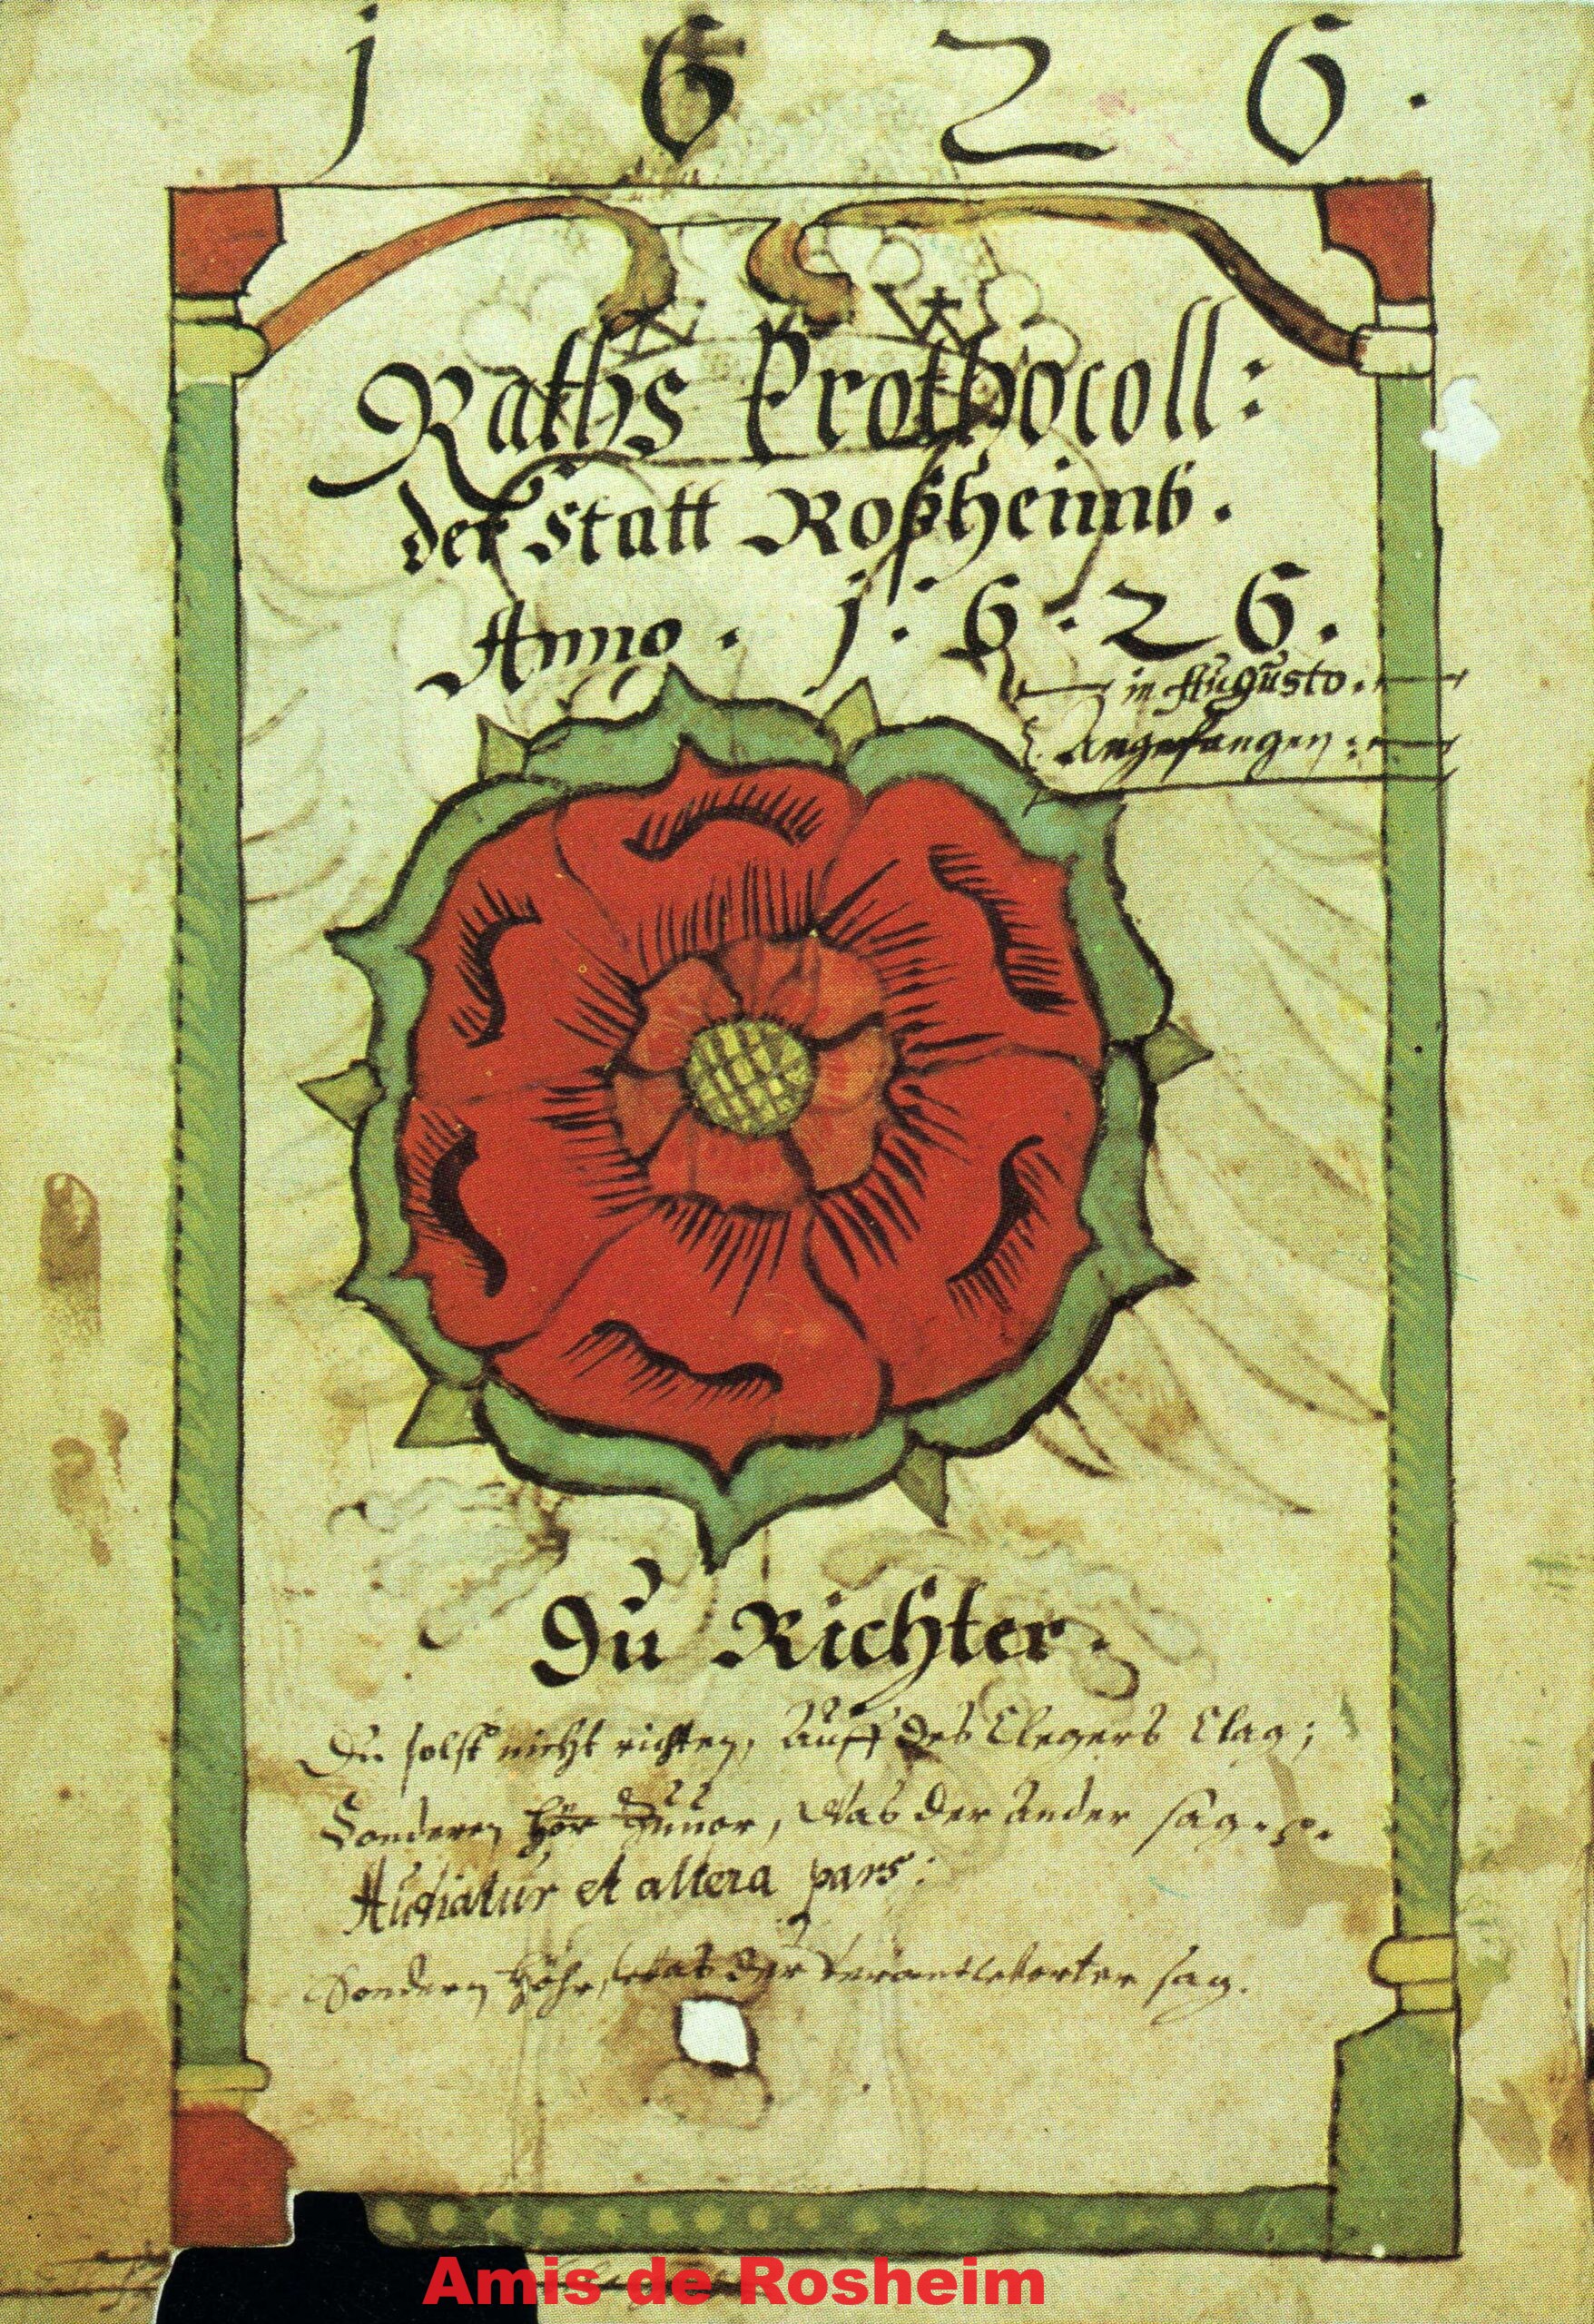 1626.
Raths Prothocoll:
der Statt Roßheimb.
Anno. 1.6.26.
in Augusto.
Angefangen:
Dŭ Richter.
Du solst nicht richten, Auff des Clegers Clag;
Sonderen hör Zuuor, Was der Ander sag.
Aŭdiatŭr et altera pars:
Sondern Höhr, was der Verantwborter sag.
Amis de Rosheim